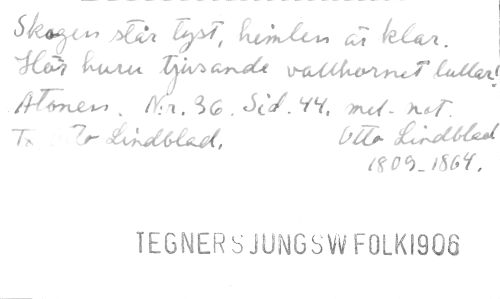 Skogen står tyst, himlen är klar.
Hör huru tjusande vallhornet lullar!
Atonen. Nr. 36. Sid. 44. mel- not.
T. Otto Lindblad. Otto Lindblad
1809-1864.
TEGNERSJUNGSWFOLK1906